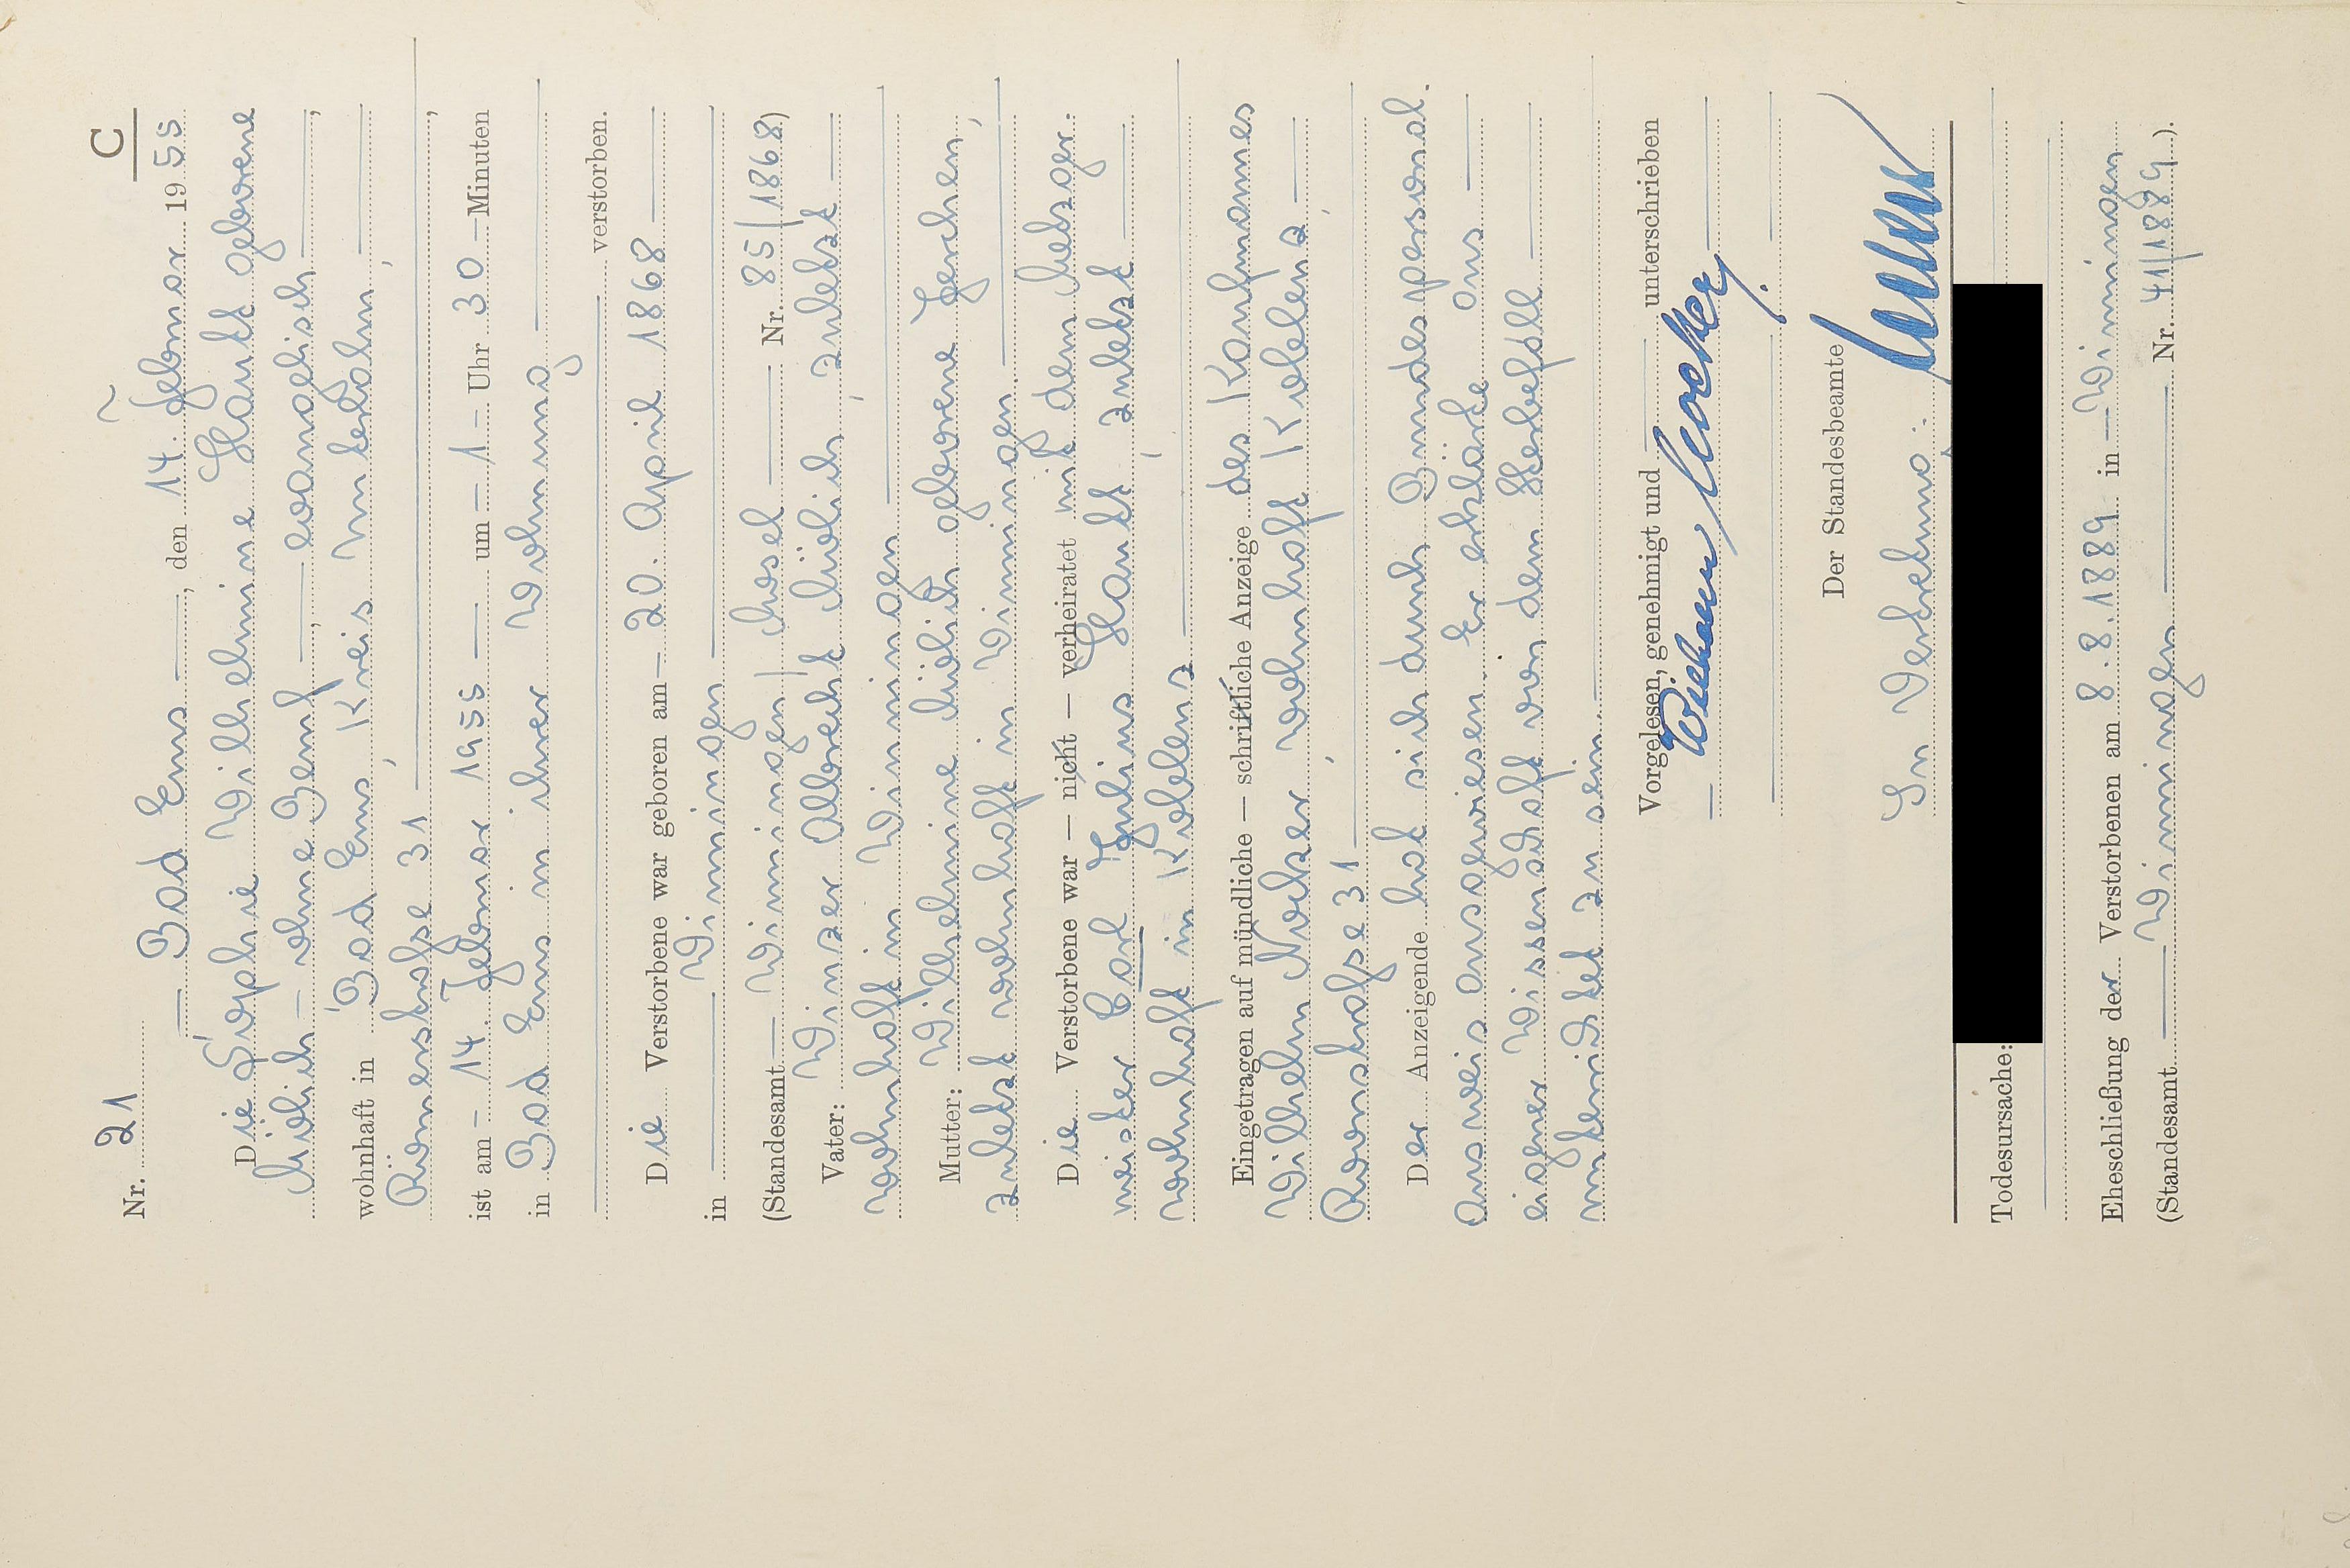 C
Nr. 21
— Bad Ems —, den 14. Februar 1955
Die Sophie Wilhelmine Hautt geborene
Löhr — ohne Beruf —, — evangelisch —,
wohnhaft in Bad Ems, Kreis Unterlahn, —
Römerstraße 31 —,
ist am — 14. Februar 1955 — um — 1 — Uhr 30 — Minuten
in Bad Ems in ihrer Wohnung —
— verstorben.
Die Verstorbene war geboren am — 20. April 1868 —
in — Winningen —
(Standesamt — Winningen / Mosel — Nr. 85/1868)
Vater: Winzer Albrecht, zuletzt —
wohnhaft in Winningen —
Mutter: Wilhelmine geborene
zuletzt wohnhaft in Winningen. —
Die Verstorbene war — nicht — verheiratet mit dem Metzger-
meister Carl Julius Hautt, zuletzt —
wohnhaft in Koblenz —
Eingetragen auf mündliche — schriftliche Anzeige des Kaufmannes
Wilhelm, wohnhaft Koblenz, —
Roonstraße 31, —
Der Anzeigende hat sich durch Bundespersonal-
ausweis ausgewiesen. Er erklärte aus —
eigener Wissenschaft von dem Sterbefall —
unterrichtet zu sein. —
Vorgelesen, genehmigt und — unterschrieben
— Wilhelm —
Der Standesbeamte
In Vertretung:
Todesursache:
Eheschließung der Verstorbenen am 8.8.1889 in — Winningen
(Standesamt — Winningen — Nr. 41/1889).